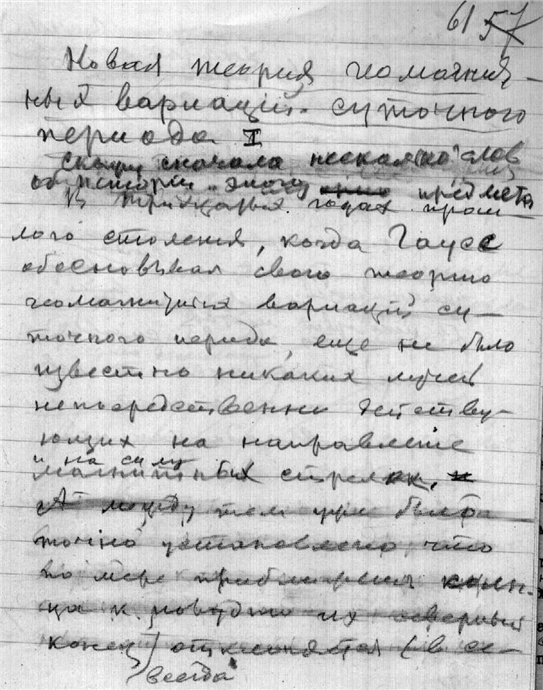 61 57
Новая теория геомагнит-
ных вариаций суточного
периода I
Скажу сначала несколько слов
об истории этого предмета
В тридцатых годах прош-
лого столетия, когда Гаусс
обосновывал свою теорию
геомагнитных вариаций су-
точного периода, еще не было
известно никаких лучей
непосредственно действу-
ющих на направление
и на силу
магнитных стрелок,
А между тем уже было
точно установлено что
по мере приближения
их северный
конец отклоняется (в
всегда